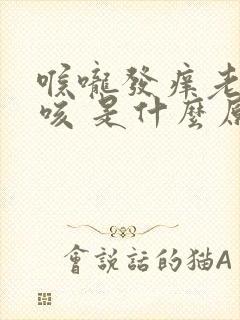 喉嚨發癢老
咳 是什麼原
會說話的貓A